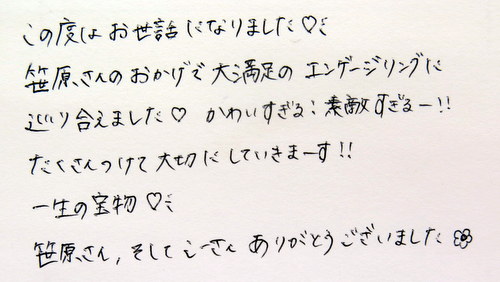 この度は お世話になりました♡
笹原さんのおかげで 大満足の エンゲージリングに
巡り合えました♡ かわいすぎる! 素敵すぎるー!!
たくさんつけて 大切に していきまーす!!
一生の宝物♡
笹原さん, そして さん ありがとうございました